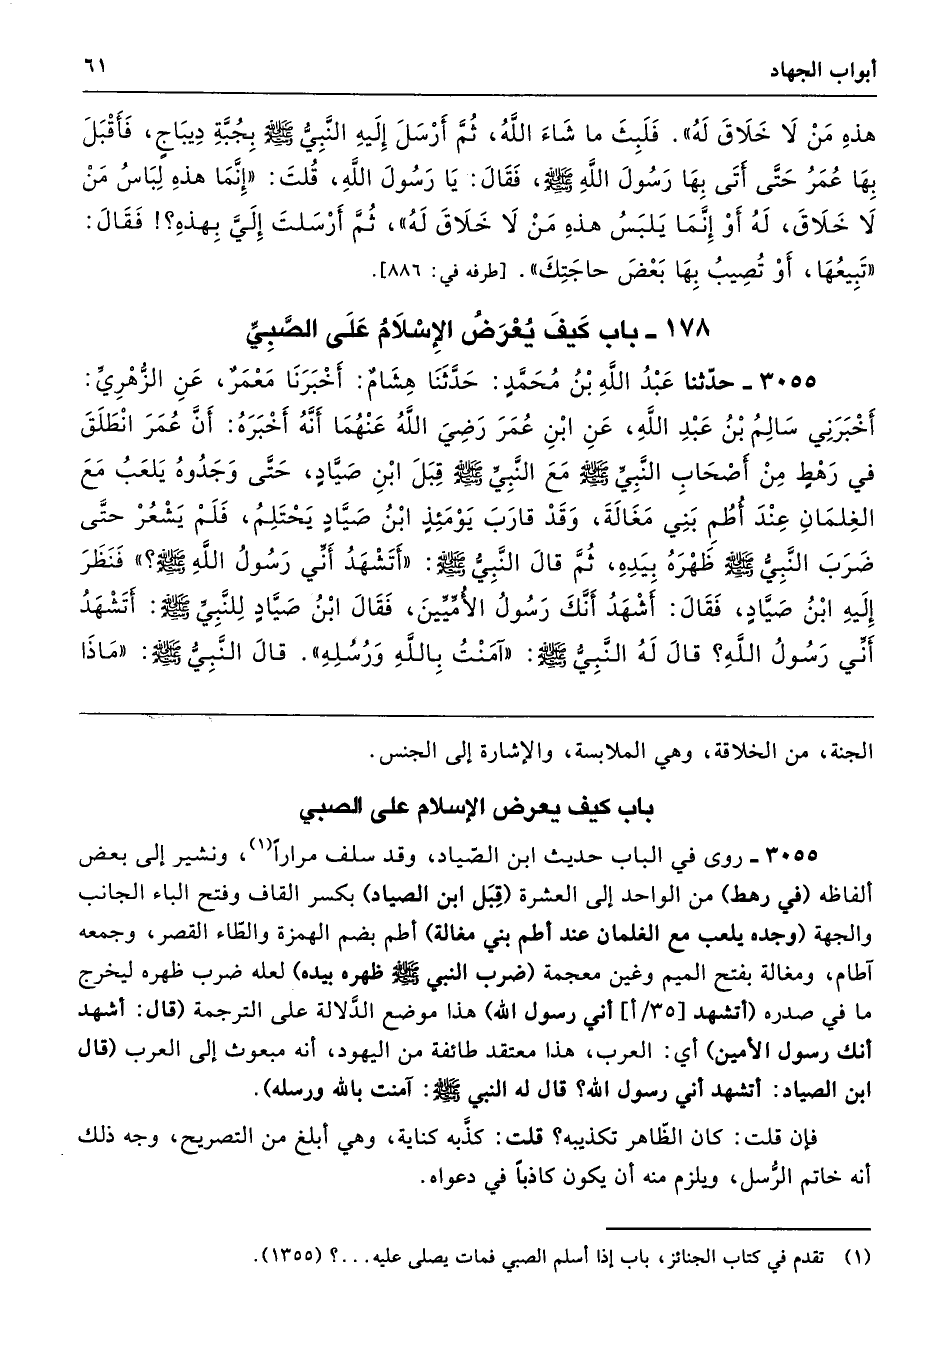 أبواب الجهاد
٦١
هذهِ مَنْ لَا خَلَاقَ لَهُ». فَلَبِثَ ما شَاءَ اللَّهُ، ثُمَّ أَرْسَلَ إِلَيهِ النَّبِيُّ ﷺ بِجُبَّةِ دِيبَاجٍ، فَأَقْبَلَ
بِهَا عُمَرُ حَتَّى أَتَى بِهَا رَسُولَ اللَّهِ ﷺ، فَقَالَ: يَا رَسُولَ اللَّهِ، قُلتَ: «إِنَّمَا هذهِ لِبَاسُ مَنْ
لَا خَلَاقَ، لَهُ أَوْ إِنَّمَا يَلبَسُ هذهِ مَنْ لَا خَلَاقَ لَهُ»، ثُمَّ أَرْسَلتَ إِلَيَّ بِهذهِ؟! فَقَالَ:
«تَبِيعُهَا، أَوْ تُصِيبُ بِهَا بَعْضَ حاجَتِكَ». [طرفه في: ٨٨٦].
١٧٨ ـ باب كَيفَ يُعْرَضُ الإِسْلَامُ عَلَى الصَّبِيِّ
٣٠٥٥ ـ حدّثنا عَبْدُ اللَّهِ بْنُ مُحَمَّدٍ: حَدَّثَنَا هِشَامٌ: أَخْبَرَنَا مَعْمَرٌ، عَنِ الزُّهْرِيِّ:
أَخْبَرَنِي سَالِمُ بْنُ عَبْدِ اللَّهِ، عَنِ ابْنِ عُمَرَ رَضِيَ اللَّهُ عَنْهُمَا أَنَّهُ أَخْبَرَهُ: أَنَّ عُمَرَ انْطَلَقَ
في رَهْطٍ مِنْ أَصْحَابِ النَّبِيِّ ﷺ مَعَ النَّبِيِّ ﷺ قِبَلَ ابْنِ صَيَّادٍ، حَتَّى وَجَدُوهُ يَلعَبُ مَعَ
الغِلمَانِ عِنْدَ أُطُمِ بَنِي مَغَالَةَ، وَقَدْ قارَبَ يَوْمَئِذٍ ابْنُ صَيَّادٍ يَحْتَلِمُ، فَلَمْ يَشْعُرْ حتَّى
ضَرَبَ النَّبِيُّ ﷺ ظَهْرَهُ بِيَدِهِ، ثُمَّ قالَ النَّبِيُّ ﷺ: «أَتَشْهَدُ أَنِّي رَسُولُ اللَّهِ ﷺ؟» فَنَظَرَ
إِلَيهِ ابْنُ صَيَّادٍ، فَقَالَ: أَشْهَدُ أَنَّكَ رَسُولُ الأُمِّيِّينَ، فَقَالَ ابْنُ صَيَّادٍ لِلنَّبِيِّ ﷺ: أَتَشْهَدُ
أَنِّي رَسُولُ اللَّهِ؟ قالَ لَهُ النَّبِيُّ ﷺ: «آمَنْتُ بِاللَّهِ وَرُسُلِهِ». قالَ النَّبِيُّ ﷺ: «مَاذَا
الجنة، من الخلاقة، وهي الملابسة، والإشارة إلى الجنس.
باب كيف يعرض الإسلام على الصبي
٣٠٥٥ ـ روى في الباب حديث ابن الصّياد، وقد سلف مراراً(١)، ونشير إلى بعض
ألفاظه (في رهط) من الواحد إلى العشرة (قِبَل ابن الصياد) بكسر القاف وفتح الباء الجانب
والجهة (وجده يلعب مع الغلمان عند أطم بني مغالة) أطم بضم الهمزة والطّاء القصر، وجمعه
آطام، ومغالة بفتح الميم وغين معجمة (ضرب النبي ﷺ ظهره بيده) لعله ضرب ظهره ليخرج
ما في صدره (أتشهد [٣٥/أ] أني رسول الله) هذا موضع الدّلالة على الترجمة (قال: أشهد
أنك رسول الأمين) أي: العرب، هذا معتقد طائفة من اليهود، أنه مبعوث إلى العرب (قال
ابن الصياد: أتشهد أني رسول الله؟ قال له النبي ﷺ: آمنت بالله ورسله).
فإن قلت: كان الظّاهر تكذيبه؟ قلت: كذَّبه كناية، وهي أبلغ من التصريح، وجه ذلك
أنه خاتم الرُّسل، ويلزم منه أن يكون كاذباً في دعواه.
(١) تقدم في كتاب الجنائز، باب إذا أسلم الصبي فمات يصلى عليه...؟ (١٣٥٥).